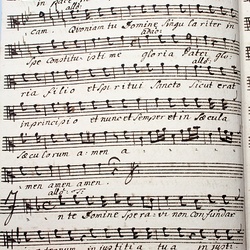 in pace in
cam. Quoniam tu Domine singulariter in
adagio
spe constituisti me gloria Patri glo:
ria Filio et spiritui sancto sicut erat
in principio et nunc et semper et in sæcula
sæculorum amen a
men amen amen.
In te Domine speravi non confundar
in justitia tua